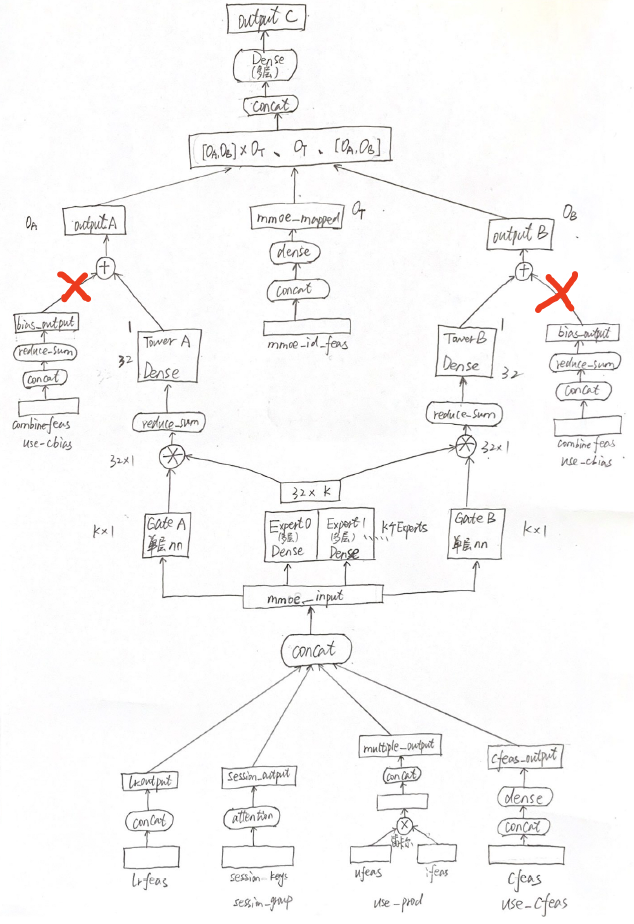 output C
Dense
(多层)
concat
[OA,OB]×OT、OT、[OA,OB]
OA
output A
mmoe_mapped
OT
OB
output B
dense
concat
mmoe_id_feas
+
+
bias_output
reduce_sum
concat
combinefeas
use_cbias
1
32
Tower A
Dense
1
32
Tower B
Dense
bias_output
reduce_sum
concat
combinefeas
use_cbias
reduce_sum
reduce_sum
32×1
32×1
32×k
K×1
Gate A
单层nn
Expert0
(多层)
Dense
Expert1
(多层)
Dense
K个Experts
Gate B
单层nn
K×1
mmoe_input
concat
lroutput
concat
lrfeas
session_output
attention
session_keys
session_group
multiple_output
concat
×
笛卡尔
ufeas
ifeas
use_prod
cfeas_output
dense
concat
cfeas
use_cfeas